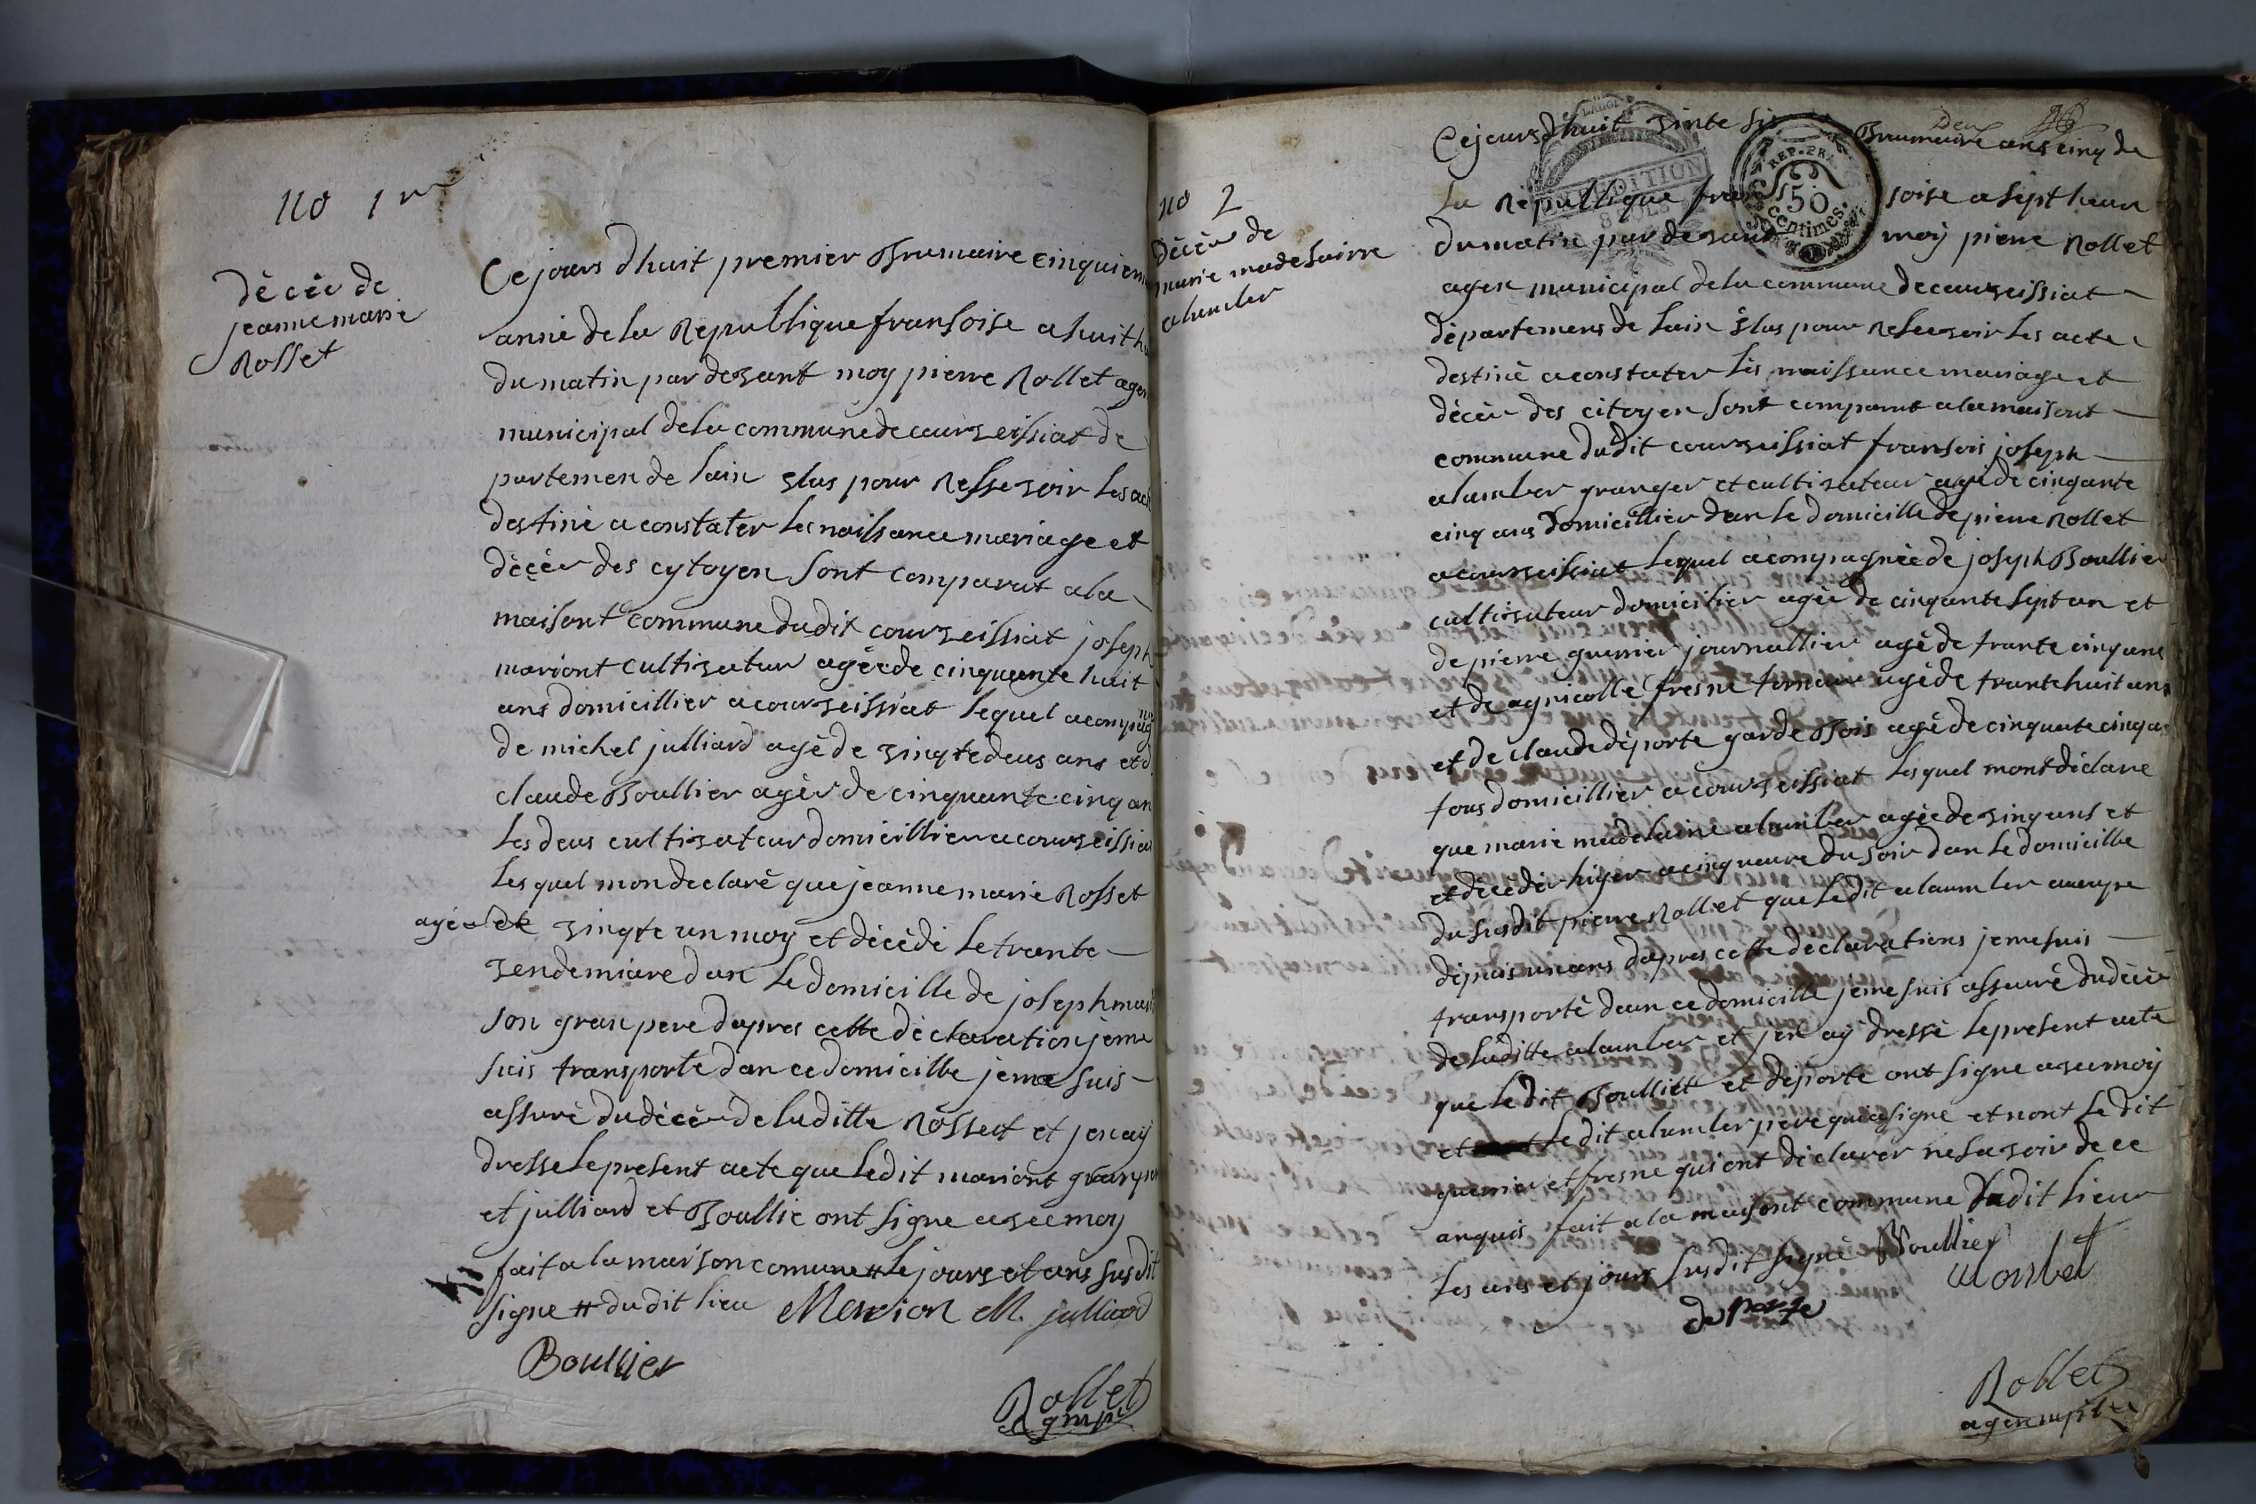 no 1er
décée de
jeanne marie
Rosset
Ce jours dhuit premier Brumaire cinquiem
année de la Republique fransoise a huit h
du matin par devant moy pierre Rollet agen
municipal de la commune de courveissiat de
partemen de lain elus pour Ressevoir les act
destiné a constater les naissance mariage et
décée des cytoyen sont comparut a la
maisont commune dudit courveissiat joseph
mariont cultivateur agée de cinquante huit
ans domicillier a courveissiat lequel acompag
de michel julliard agé de vingte deus ans et d
claude Boullier agée de cinquante cinq an
les deus cultivateur domicillier a courveissiat
lesquel mon declaré que jeanne marie Rosset
agée de vingte un moy et décédé le trante
vendemiare dan le domicille de joseph mari
son gran pere dapres cette déclaration jeme
suis transporté dan ce domicille jeme suis
assuré du décée de laditte Rosset et jen ay
dresse le present acte que ledit mariont granp
et julliard et Boullie ont signe avec moy
fait a la maison comune # le jours et ans susdit
signe # dudit lieu Mervion M. julliard
Boullier
Rollet
agmpl
no 2
décée de
marie madelainne
alumber
Deux 26
REP. FRA
50
centimes
EXPEDITION
8 SOLS
Ce jours dhuit vinte sis Brumaire ans cinq de
la Republique fransoise a sept heure
du matin par devant moy pierre Rollet
agen municipal de la commune de courveissiat
départemens de lain élus pour Ressevoir les acte
destiné a constater les naissance mariage et
décée des citoyen sont comparut a la maisont
commune dudit courveissiat fransois joseph
alumber granger et cultivateur agé de cinqante
cinq ans domicillier dan le domicille de pierre Rollet
a courveissiat lequel acompagnée de joseph Boullier
cultivateur domicilier agée de cinqante sept an et
de pierre guerrier journallier agé de trante cinq ans
et de agnicolle fresne terneur agé de trante huit ans
et de claude déporte garde Bois agé de cinquante cinq a
tous domicillier a courveissiat lesquel mont déclare
que marie madelaine alumber agée de vinq ans et
et décédée hiyer a cinq heure du soir dan le domicille
du susdit pierre Rollet que ledit alaumber aucupe
dépuis un ans dapres cette declarations jeme suis
transporté dan ce domicille jeme suis assuré du décée
de laditte alamber et jen ay dressé le present acte
que ledit Boulliet et déporte ont signe avec moy
et ledit alumber pere qui a signe et nont ledit
guerrier et fresne qui ont déclarer ne savoir de ce
anquis fait a la maisont commune dudit lieu
les ans et jours susdit signé Boullier
alombet
deporte
Rollet
agen mpl